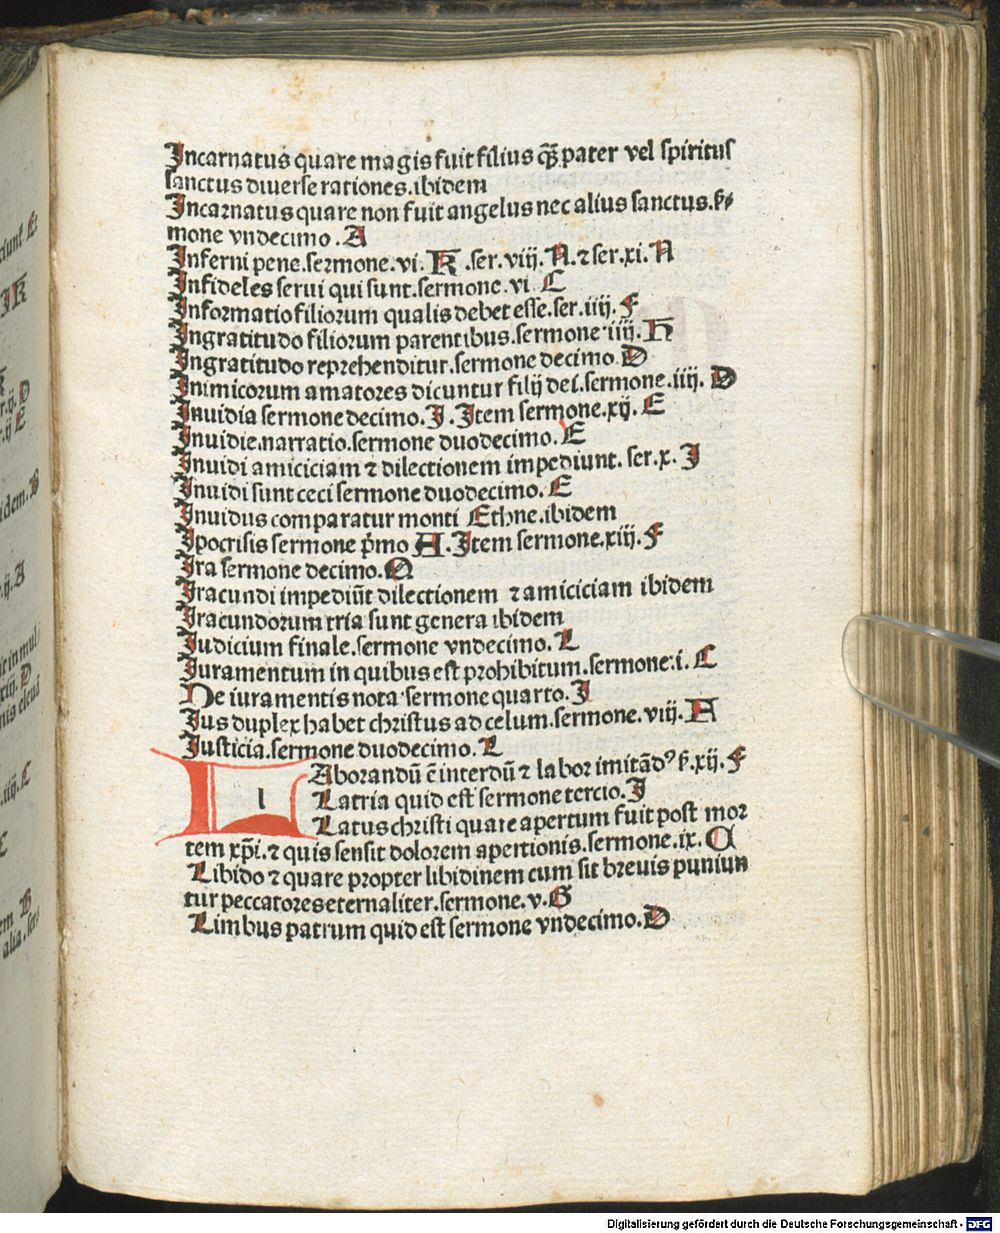 Incarnatus quare magis fuit filius qȝ pater vel spiritus
sanctus diverse rationes.ibidem
Incarnatus quare non fuit angelus nec alius sanctus.ẜ-
mone vndecimo .A
Inferni pene.sermone.vi.K .ser.viij.N.⁊ ser.xi.N
Infideles serui qui sunt.sermone.vi C
Informatio filiorum qualis debet esse.ser.iiij.F
Ingratitudo filiorum parentibus.sermone iiij.H
Ingratitudo reprehenditur.sermone decimo.D
Inimicorum amatores dicuntur filij dei.sermone.iiij. D
Inuidia sermone decimo.I.Item sermone.xij.E
Inuidie.narratio.sermone duodecimo.E
Inuidi amiciciam ⁊ dilectionem impediunt. ser.x.I
Inuidi sunt ceci sermone duodecimo.E
Inuidus comparatur monti Ethne.ibidem
Ipocrisis sermone p̄mo A.Item sermone.xiij.F
Ira sermone decimo.O
Iracundi impediūt dilectionem ⁊ amiciciam ibidem
Iracundorum tria sunt genera ibidem
Iudicium finale.sermone vndecimo.L
Iuramentum in quibus est prohibitum.sermone.i.C
De iuramentis nota sermone quarto.I
Ius duplex habet christus ad celum.sermone.viij.A
Iusticia.sermone duodecimo.L
l Aborandū ē interdū ⁊ labor imitādꝰ ẜ.xij.F
Latria quid est sermone tercio.I
Latus christi quare apertum fuit post mor
tem xp̄i.⁊ quis sensit dolorem apertionis.sermone.ix.Q
Libido ⁊ quare propter libidinem cum sit brevis puniun
tur peccatores eternaliter.sermone.v.G
Limbus patrum quid est sermone vndecimo.D
Digitalisierung gefördert durch die Deutsche Forschungsgemeinschaft - DFG